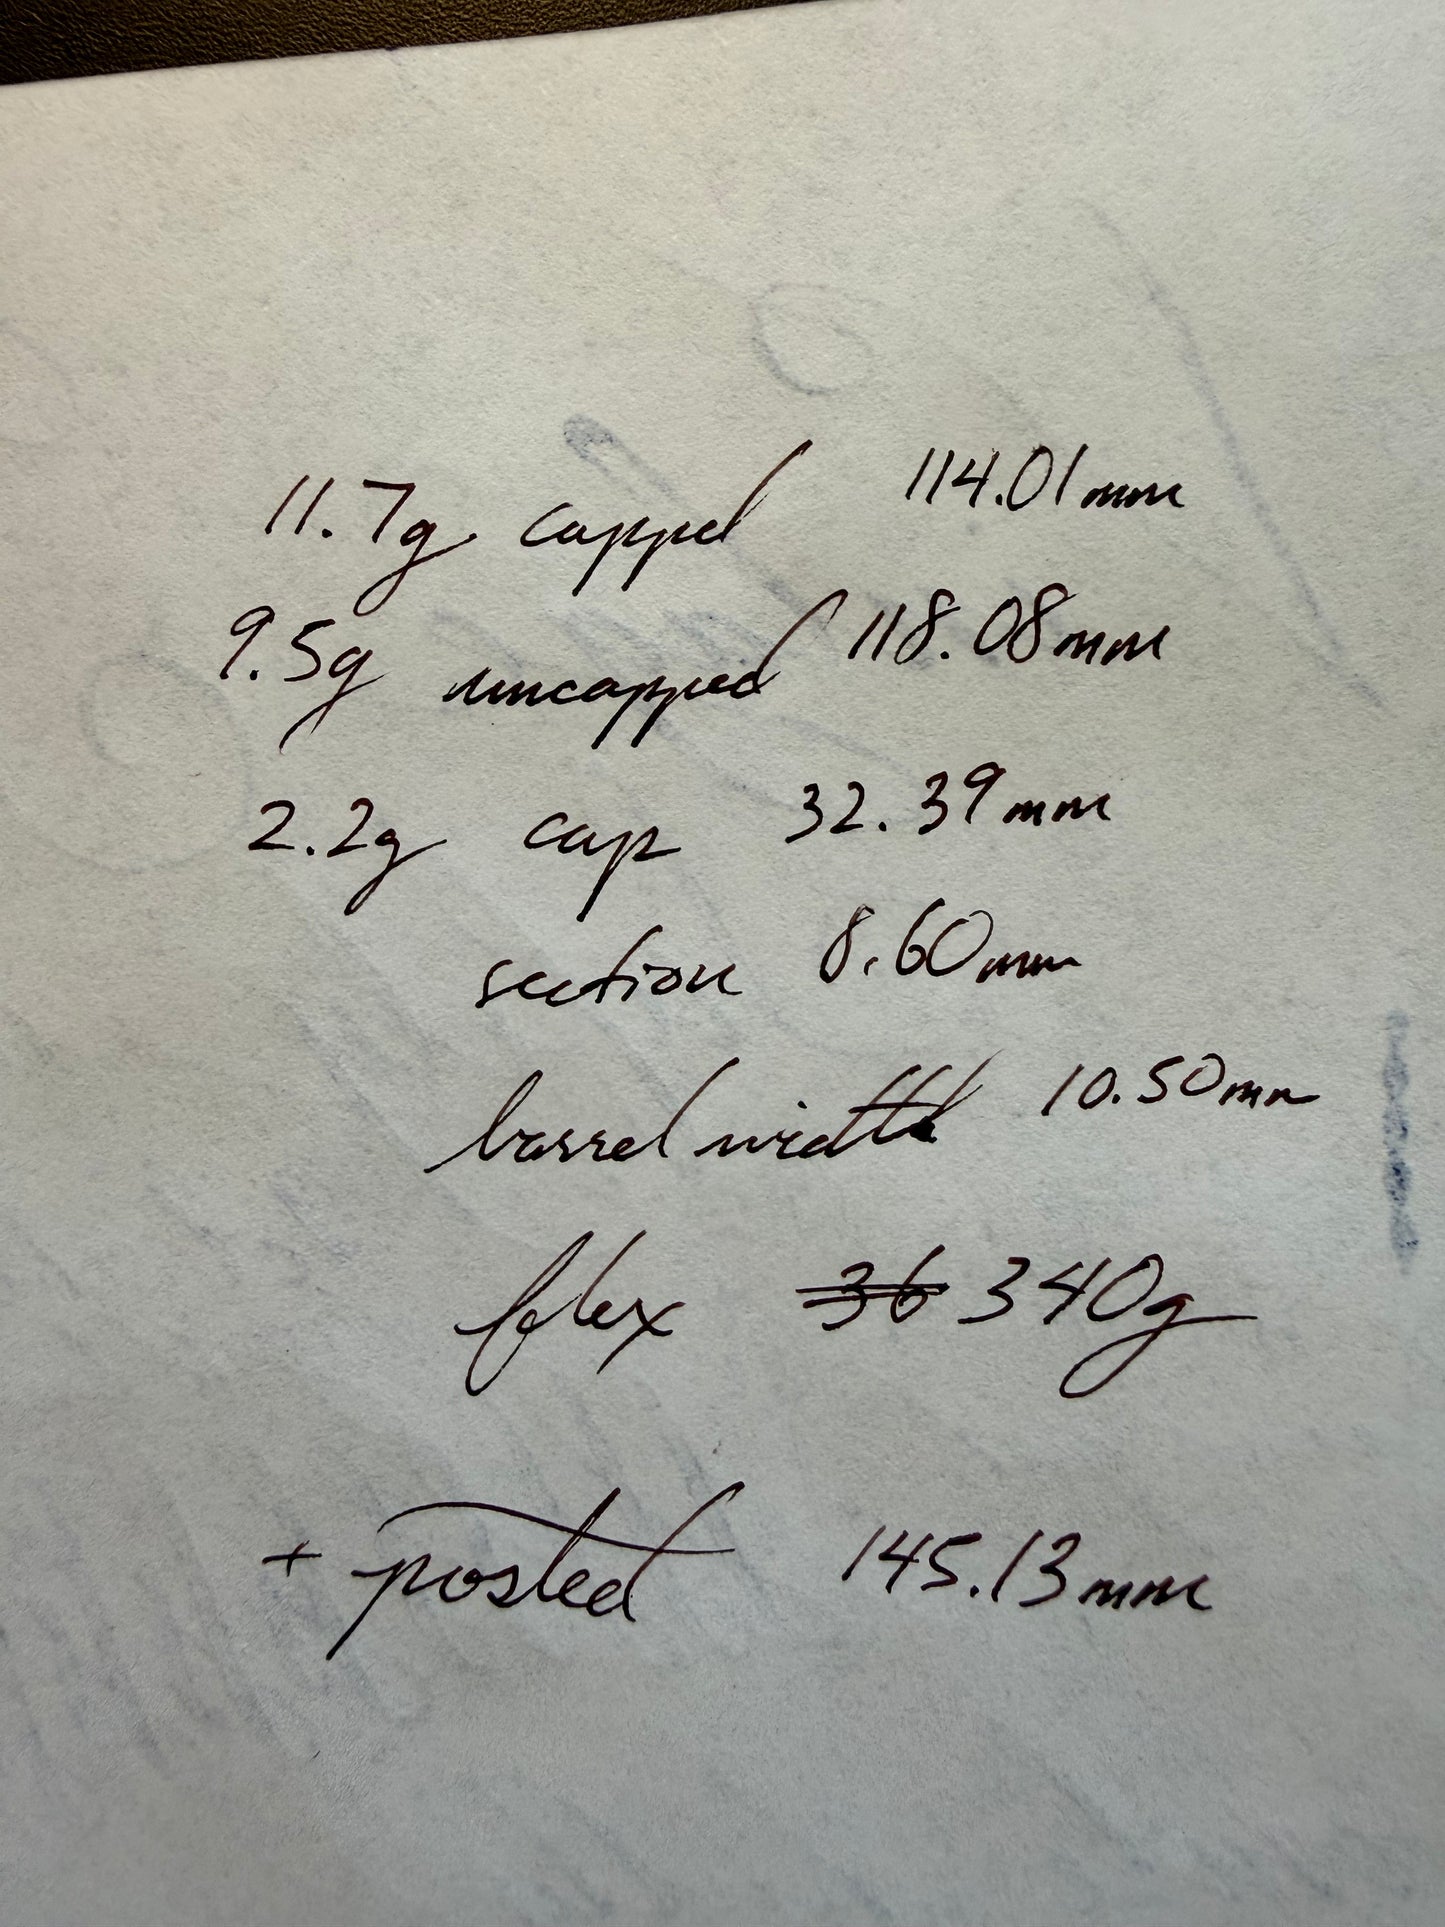 11.7g capped 114.01mm
9.5g uncapped 118.08mm
2.2g cap 32.39mm
section 8.60mm
barrel width 10.50mm
flex 36 340g
+ posted 145.13mm